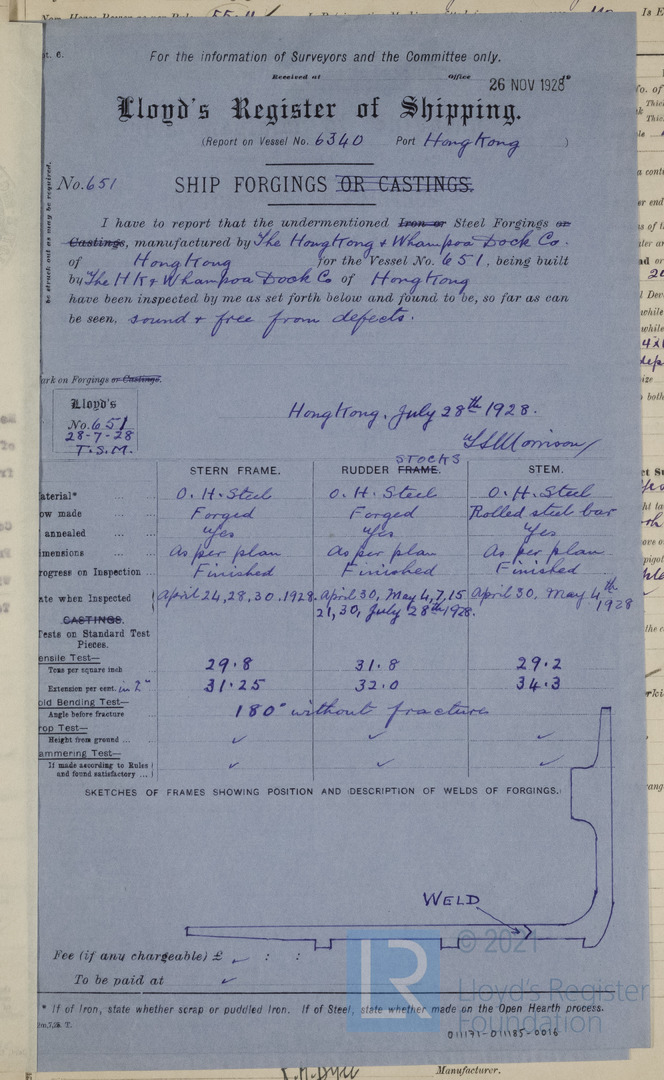 For the information of Surveyors and the Committee only.
Received at Office 26 NOV 1928
Lloyd's Register of Shipping.
(Report on Vessel No. 6340 Port HongKong )
No. 651 SHIP FORGINGS OR CASTINGS.
be struck out as may be required.
I have to report that the undermentioned Iron or Steel Forgings or
Castings, manufactured by The HongKong & Whampoa Dock Co.
of HongKong for the Vessel No. 651, being built
by The HK & Whampoa Dock Co of HongKong
have been inspected by me as set forth below and found to be, so far as can
be seen, sound & free from defects.
ark on Forgings or Castings.
Lloyd's
No. 651
28-7-28
T.S.M.
HongKong, July 28th 1928.
Morrison
STOCKS
STERN FRAME. RUDDER FRAME. STEM.
aterial* O. H. Steel O. H. Steel O. H. Steel
ow made Forged Forged Rolled steel bar
annealed yes yes yes
imensions As per plan As per plan As per plan
rogress on Inspection Finished Finished Finished
ate when Inspected April 24, 28, 30. 1928. April 30, May 4, 7, 15 April 30, May 4th
21, 30, July 28th 1928. 1928
CASTINGS.
Tests on Standard Test
Pieces.
ensile Test—
Tons per square inch 29.8 31.8 29.2
Extension per cent. in 2" 31.25 32.0 34.3
old Bending Test—
Angle before fracture 180° without fracture
rop Test—
Height from ground ... ✓ ✓ ✓
ammering Test—
If made according to Rules ✓ ✓ ✓
and found satisfactory ...
SKETCHES OF FRAMES SHOWING POSITION AND DESCRIPTION OF WELDS OF FORGINGS.
WELD
Fee (if any chargeable) £ ✓ : :
To be paid at ✓
* If of Iron, state whether scrap or puddled Iron. If of Steel, state whether made on the Open Hearth process.
© 2021
LR
Lloyd's Register
Foundation
011171-011185-0016
Manufacturer.